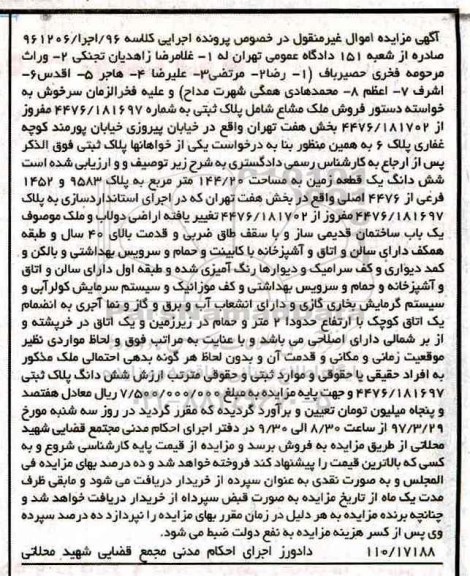 آگهی مزایده اموال غیرمنقول در خصوص پرونده اجرایی کلاسه ۹۶/اجرا/۹۶۱۲۰۶
صادره از شعبه ۱۵۱ دادگاه عمومی تهران له ۱- غلامرضا زاهدیان تجنکی ۲- وراث
مرحومه فخری حصیرباف (۱- رضا۲- مرتضی۳- علیرضا ۴- هاجر ۵- اقدس۶-
اشرف ۷- اعظم ۸- محمدهادی همگی شهرت مداح) و علیه فخرالزمان سرخوش به
خواسته دستور فروش ملک مشاع شامل پلاک ثبتی به شماره ۴۴۷۶/۱۸۱۶۹۷ مفروز
از ۴۴۷۶/۱۸۱۷۰۲ بخش هفت تهران واقع در خیابان پیروزی خیابان پورمند کوچه
غفاری پلاک ۶ به همین منظور بنا به درخواست یکی از خواهانها پلاک ثبتی فوق الذکر
پس از ارجاع به کارشناس رسمی دادگستری به شرح زیر توصیف و و ارزیابی شده است
شش دانگ یک قطعه زمین به مساحت ۱۴۴/۲۰ متر مربع به پلاک ۹۵۸۳ و ۱۴۵۲
فرعی از ۴۴۷۶ اصلی واقع در بخش هفت تهران که در اجرای استانداردسازی به پلاک
۴۴۷۶/۱۸۱۶۹۷ مفروز از ۴۴۷۶/۱۸۱۷۰۲ تغییر یافته اراضی دولاب و ملک موصوف
یک باب ساختمان قدیمی ساز و با سقف طاق ضربی و قدمت بالای ۴۰ سال و طبقه
همکف دارای سالن و اتاق و آشپزخانه با کابینت و حمام و سرویس بهداشتی و بالکن و
کمد دیواری و کف سرامیک و دیوارها رنگ آمیزی شده و طبقه اول دارای سالن و اتاق
و آشپزخانه و حمام و سرویس بهداشتی و کف موزائیک و سیستم سرمایش کولرآبی و
سیستم گرمایش بخاری گازی و دارای انشعاب آب و برق و گاز و نما آجری به انضمام
یک اتاق کوچک با ارتفاع حدودا ۲ متر و حمام در زیرزمین و یک اتاق در خرپشته و
از بر شمالی دارای اصلاحی می باشد و با عنایت به مراتب فوق و لحاظ مواردی نظیر
موقعیت زمانی و مکانی و قدمت آن و بدون لحاظ هر گونه بدهی احتمالی ملک مذکور
به افراد حقیقی یا حقوقی و موارد ثبتی و حقوقی مترتب ارزش شش دانگ پلاک ثبتی
۴۴۷۶/۱۸۱۶۹۷ و جهت پایه مزایده به مبلغ ۷/۵۰۰/۰۰۰/۰۰۰ ریال معادل هفتصد
و پنجاه میلیون تومان تعیین و برآورد گردیده که مقرر گردید در روز سه شنبه مورخ
۹۷/۳/۲۹ از ساعت ۸/۳۰ الی ۹/۳۰ در دفتر اجرای احکام مدنی مجتمع قضایی شهید
محلاتی از طریق مزایده به فروش برسد و مزایده از قیمت پایه کارشناسی شروع و به
کسی که بالاترین قیمت را پیشنهاد کند فروخته خواهد شد و ده درصد بهای مزایده فی
المجلس و به صورت نقدی به عنوان سپرده از خریدار دریافت می شود و مابقی ظرف
مدت یک ماه از تاریخ مزایده به صورت قبض سپرداه از خریدار دریافت خواهد شد و
چنانچه برنده مزایده به هر دلیل در زمان مقرر بهای مزایده را نپردازد ده درصد سپرده
وی پس از کسر هزینه مزایده به نفع دولت ضبط می شود.
۱۱۰/۱۷۱۸۸ دادورز اجرای احکام مدنی مجمع قضایی شهید محلاتی